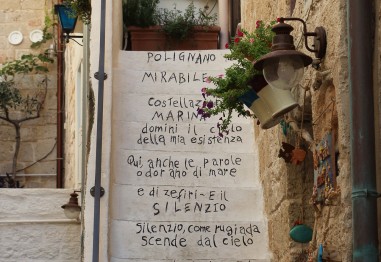 POLIGNANO
MIRABILE
Costellazi
MARIN
domini il cielo
della mia esistenza
Qui anche le parole
odorano di mare
e di zefiri - E il
SILENZIO
Silenzio, come rugiada
scende dal cielo